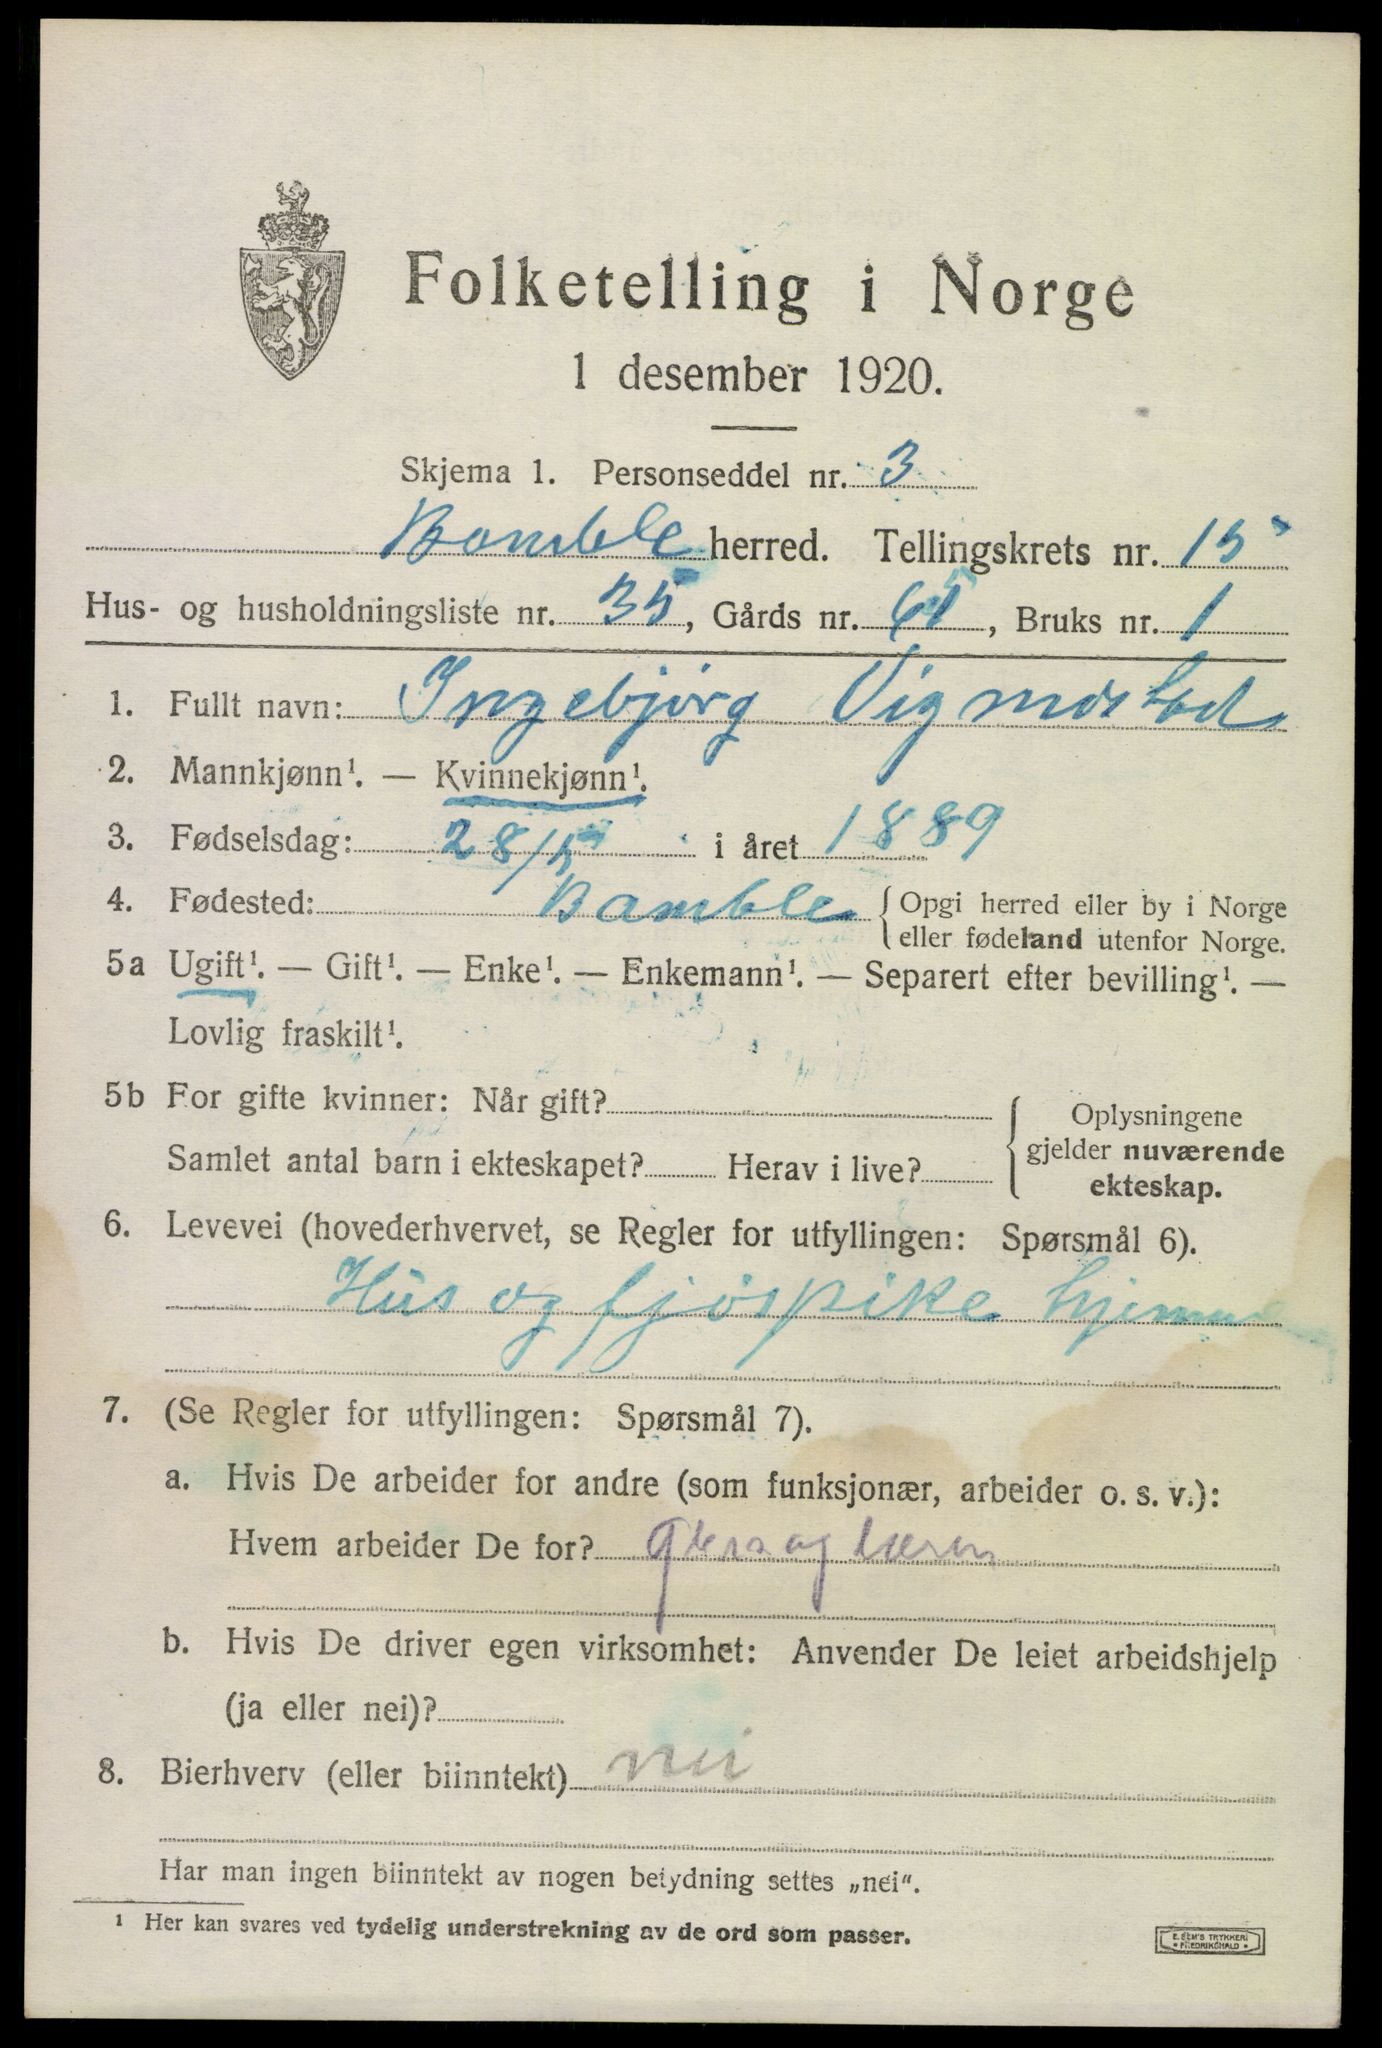 Folketelling i Norge
1 desember 1920.
Skjema 1. Personseddel nr. 3
Bamble herred. Tellingskrets nr. 15
Hus- og husholdningsliste nr. 35, Gårds nr. 61, Bruks nr. 1
1. Fullt navn: Ingebjørg Vigmostad
2. Mannkjønn¹. — Kvinnekjønn¹.
3. Fødselsdag: 28/5 i året 1889
4. Fødested: Bamble { Opgi herred eller by i Norge
eller fødeland utenfor Norge.
5a Ugift¹. — Gift¹. — Enke¹. — Enkemann¹. — Separert efter bevilling¹. —
Lovlig fraskilt¹.
5b For gifte kvinner: Når gift? { Oplysningene
gjelder nuværende
Samlet antal barn i ekteskapet? Herav i live?
ekteskap.
6. Levevei (hovederhvervet, se Regler for utfyllingen: Spørsmål 6).
Hus og fjøspike hjemme
7. (Se Regler for utfyllingen: Spørsmål 7).
a. Hvis De arbeider for andre (som funksjonær, arbeider o. s. v.):
Hvem arbeider De for?
b. Hvis De driver egen virksomhet: Anvender De leiet arbeidshjelp
(ja eller nei)?
8. Bierhverv (eller biinntekt) nei
Har man ingen biinntekt av nogen betydning settes „nei“.
¹ Her kan svares ved tydelig understrekning av de ord som passer.
E. SEM'S TRYKKERI
FREDRIKSHALD